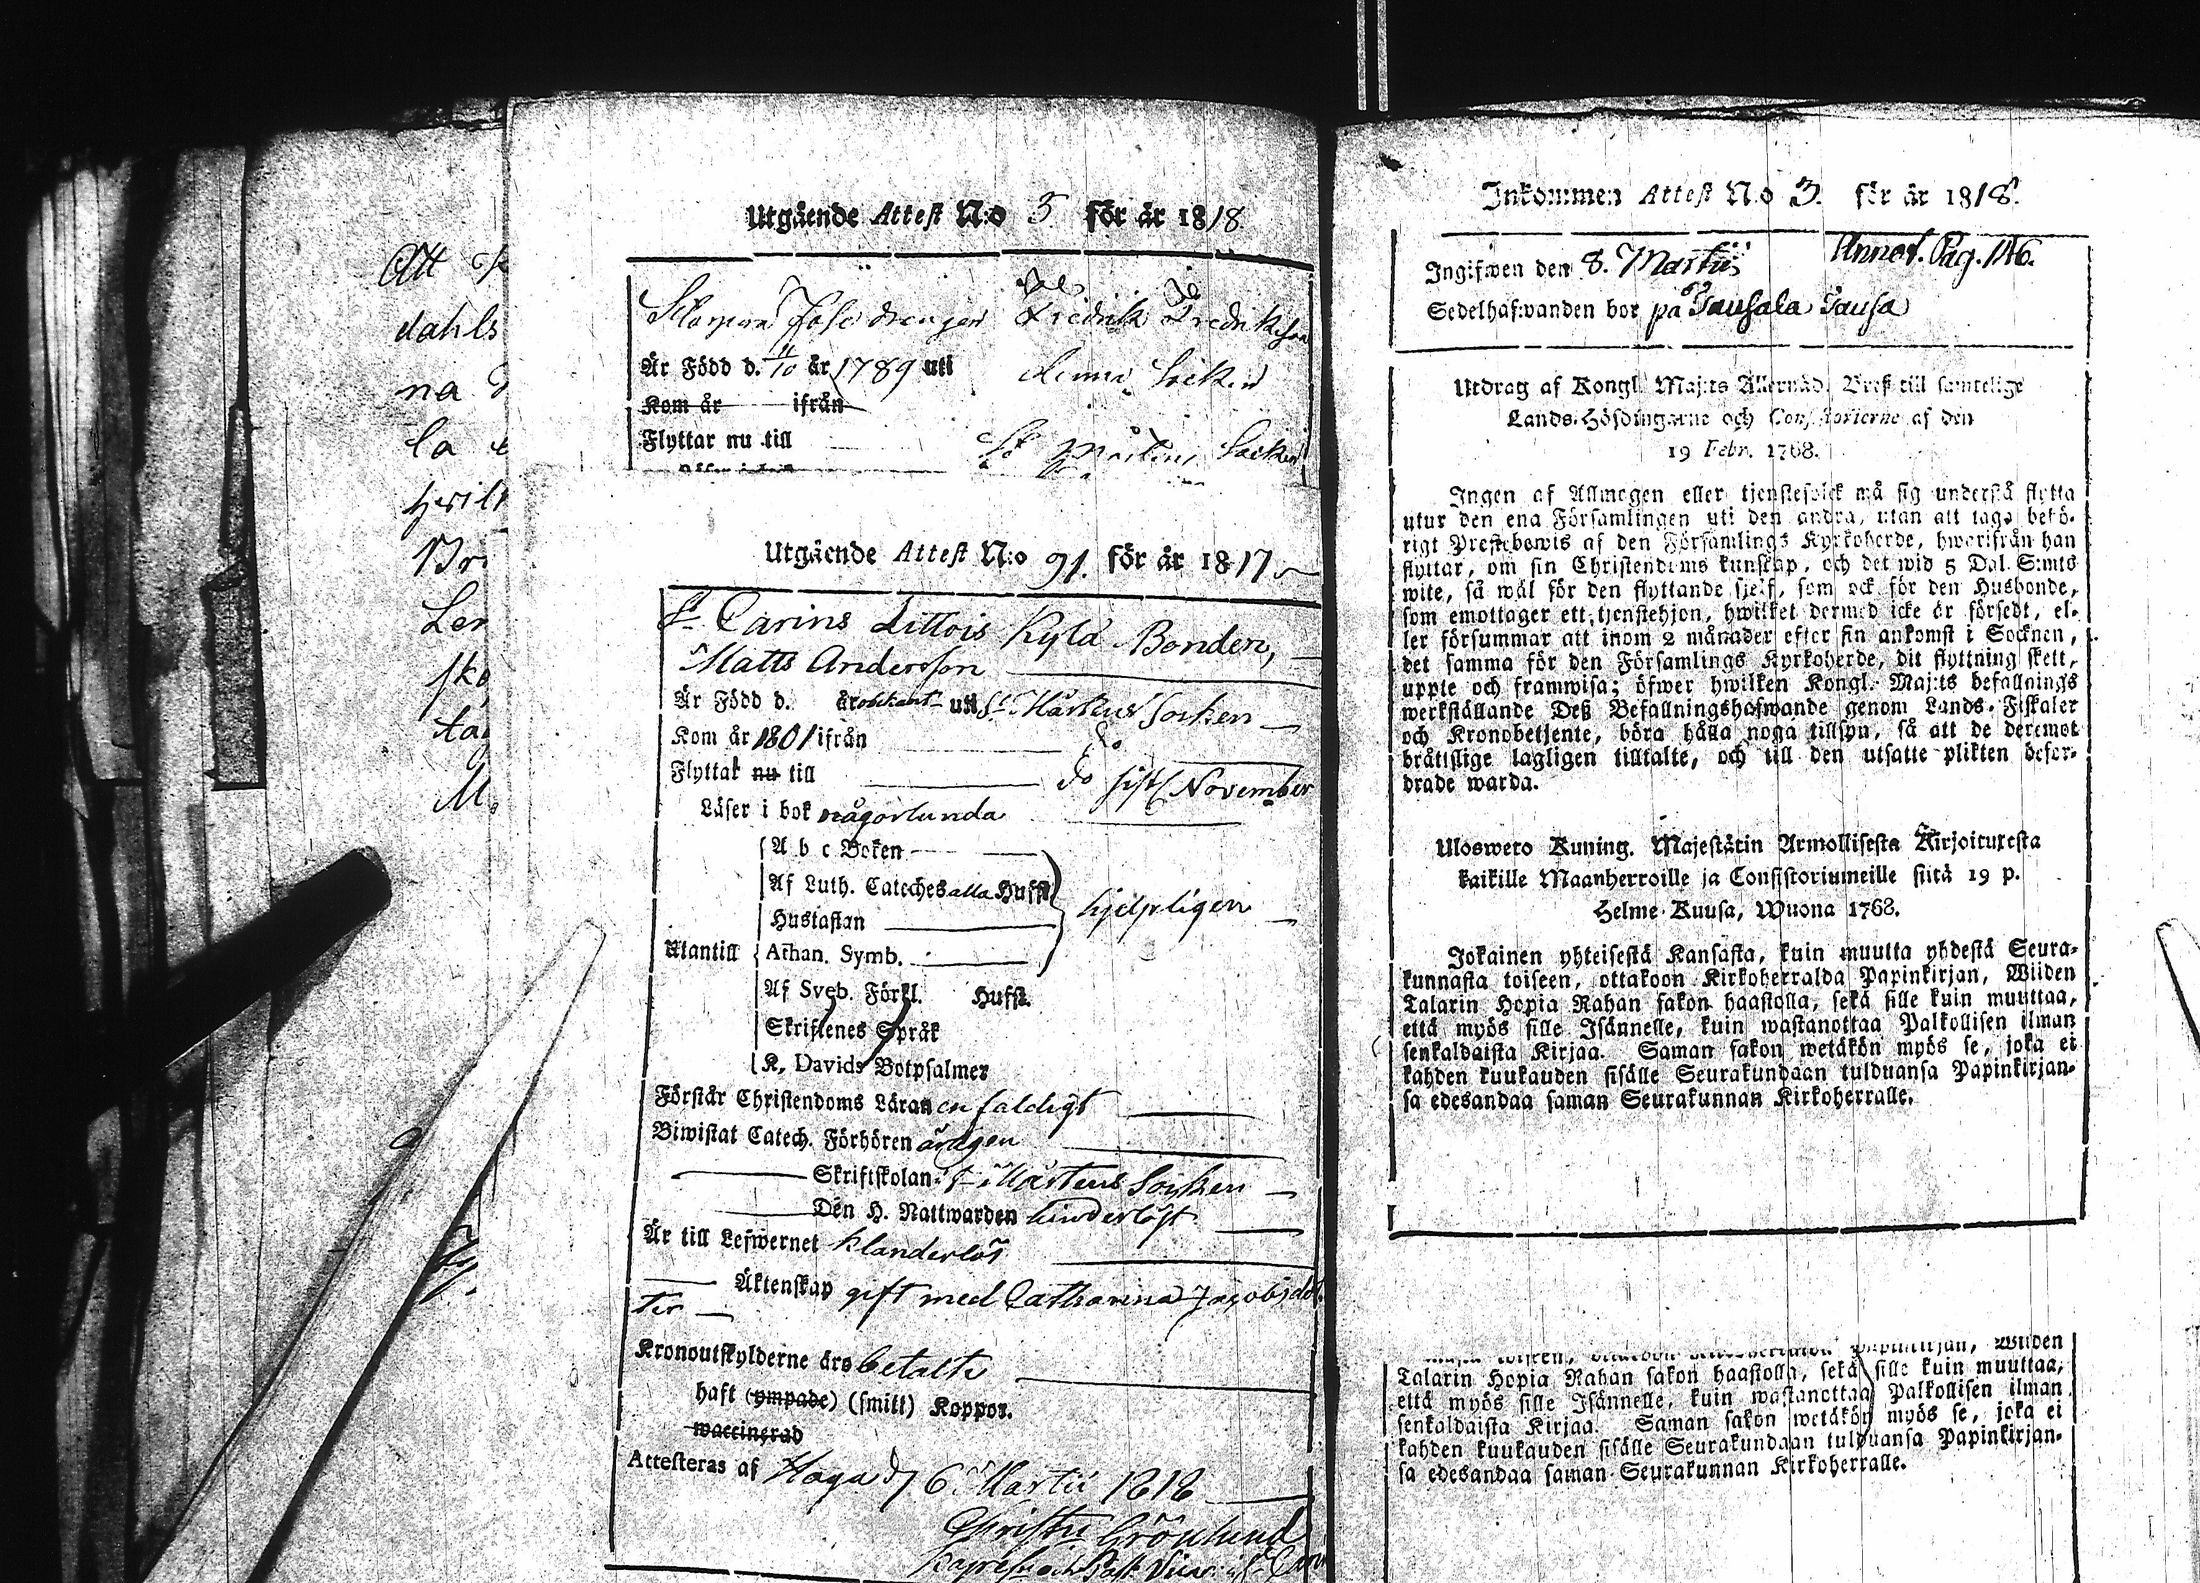 Att
dahls
na
la
Ler
sko
ta
M.
Utgående Attest N:o 3 för år 1818.
drengen Fredrik Fredriksson
Är Född d. 11/10 år 1789 uti denna Socken
Kom år ifrån
Flyttar nu till St Mårtens Socken
Utgående Attest N:o 91. för år 1817
St Carins Littois Kylä Bonden,
Matts Andersson
Är Född d. år obekant uti St Mårtens Socken
Kom år 1801 ifrån do
Flyttat nu till do sistl November
Läser i bok någorlunda
A b c Boken
Af Luth. Cateches alla Hufst
Hustaflan
hjelpligen
Utantill
Athan. Symb.
Af Sveb. Förkl. Hufst.
Skriftenes Språk
K. Davids Botpsalmer
Förstår Christendoms Läran enfaldigt
Biwistat Catech. Förhören årligen
Skriftskolan i St Mårtens Socken
Den H. Nattwarden hinderlöst
Är till Lefwernet klanderlös
Äktenskap gift med Catharina Jacobsdot
ter
Kronoutskylderne äro betalte
haft (ympade) (smitt) Koppor.
waccinerad
Attesteras af Haga d 6 Martii 1818
Christ Grönlund
Inkommen Attest N:o 3. för år 1818.
Ingifwen den 8. Martii Annot. Pag. 146.
Sedelhafwanden bor på Tausala Tausa
Utdrag af Kongl. Maj:ts Allernåd. Bref till samtelige
Lands-Höfdingarne och Consistorierne af den
19 Febr. 1768.
Ingen af Allmogen eller tjenstefolck må sig understå flytta
utur den ena Församlingen uti den andra, utan att taga behö-
rigt Prestebewis af den Församlings Kyrkoherde, hwarifrån han
flyttar, om sin Christendoms kunskap, och det wid 5 Dal. S:mts
wite, så wäl för den flyttande sjelf, som ock för den Husbonde,
som emottager ett tjenstehjon, hwilket dermed icke är försedt, el-
ler försummar att inom 2 månader efter sin ankomst i Socknen,
det samma för den Församlings Kyrkoherde, dit flyttning skett,
uppte och framwisa; öfwer hwilken Kongl. Maj:ts befallnings
werkställande Deß Befallningshafwande genom Lands-Fiskaler
och Kronobetjente, böra hålla noga tillsyn, så att de deremot
bråtislige lagligen tilltalte, och till den utsatte plikten befor-
drade warda.
Uloswero Kuning. Majestätin Armollisesta Kirjoituxesta
kaikille Maanherroille ja Consistoriumeille siitä 19 p.
Helme-Kuusa, Wuona 1768.
Jokainen yhteisestä Kansasta, kuin muutta yhdestä Seura-
kunnasta toiseen, ottakoon Kirkoherralda Papinkirjan, Wiiden
Talarin Hopia Rahan sakon haastolla, sekä sille kuin muuttaa,
että myös sille Isännelle, kuin wastanottaa Palkollisen ilman
senkaldaista Kirjaa. Saman sakon wetäkön myös se, joka ei
kahden kuukauden sisälle Seurakundaan tulduansa Papinkirjan-
sa edesandaa saman Seurakunnan Kirkoherralle.
Papinkirjan, Wiiden
Talarin Hopia Rahan sakon haastolla, sekä sille kuin muuttaa,
että myös sille Isännelle, kuin wastanottaa Palkollisen ilman
senkaldaista Kirjaa. Saman sakon wetäkön myös se, joka ei
kahden kuukauden sisälle Seurakundaan tulduansa Papinkirjan-
sa edesandaa saman Seurakunnan Kirkoherralle.